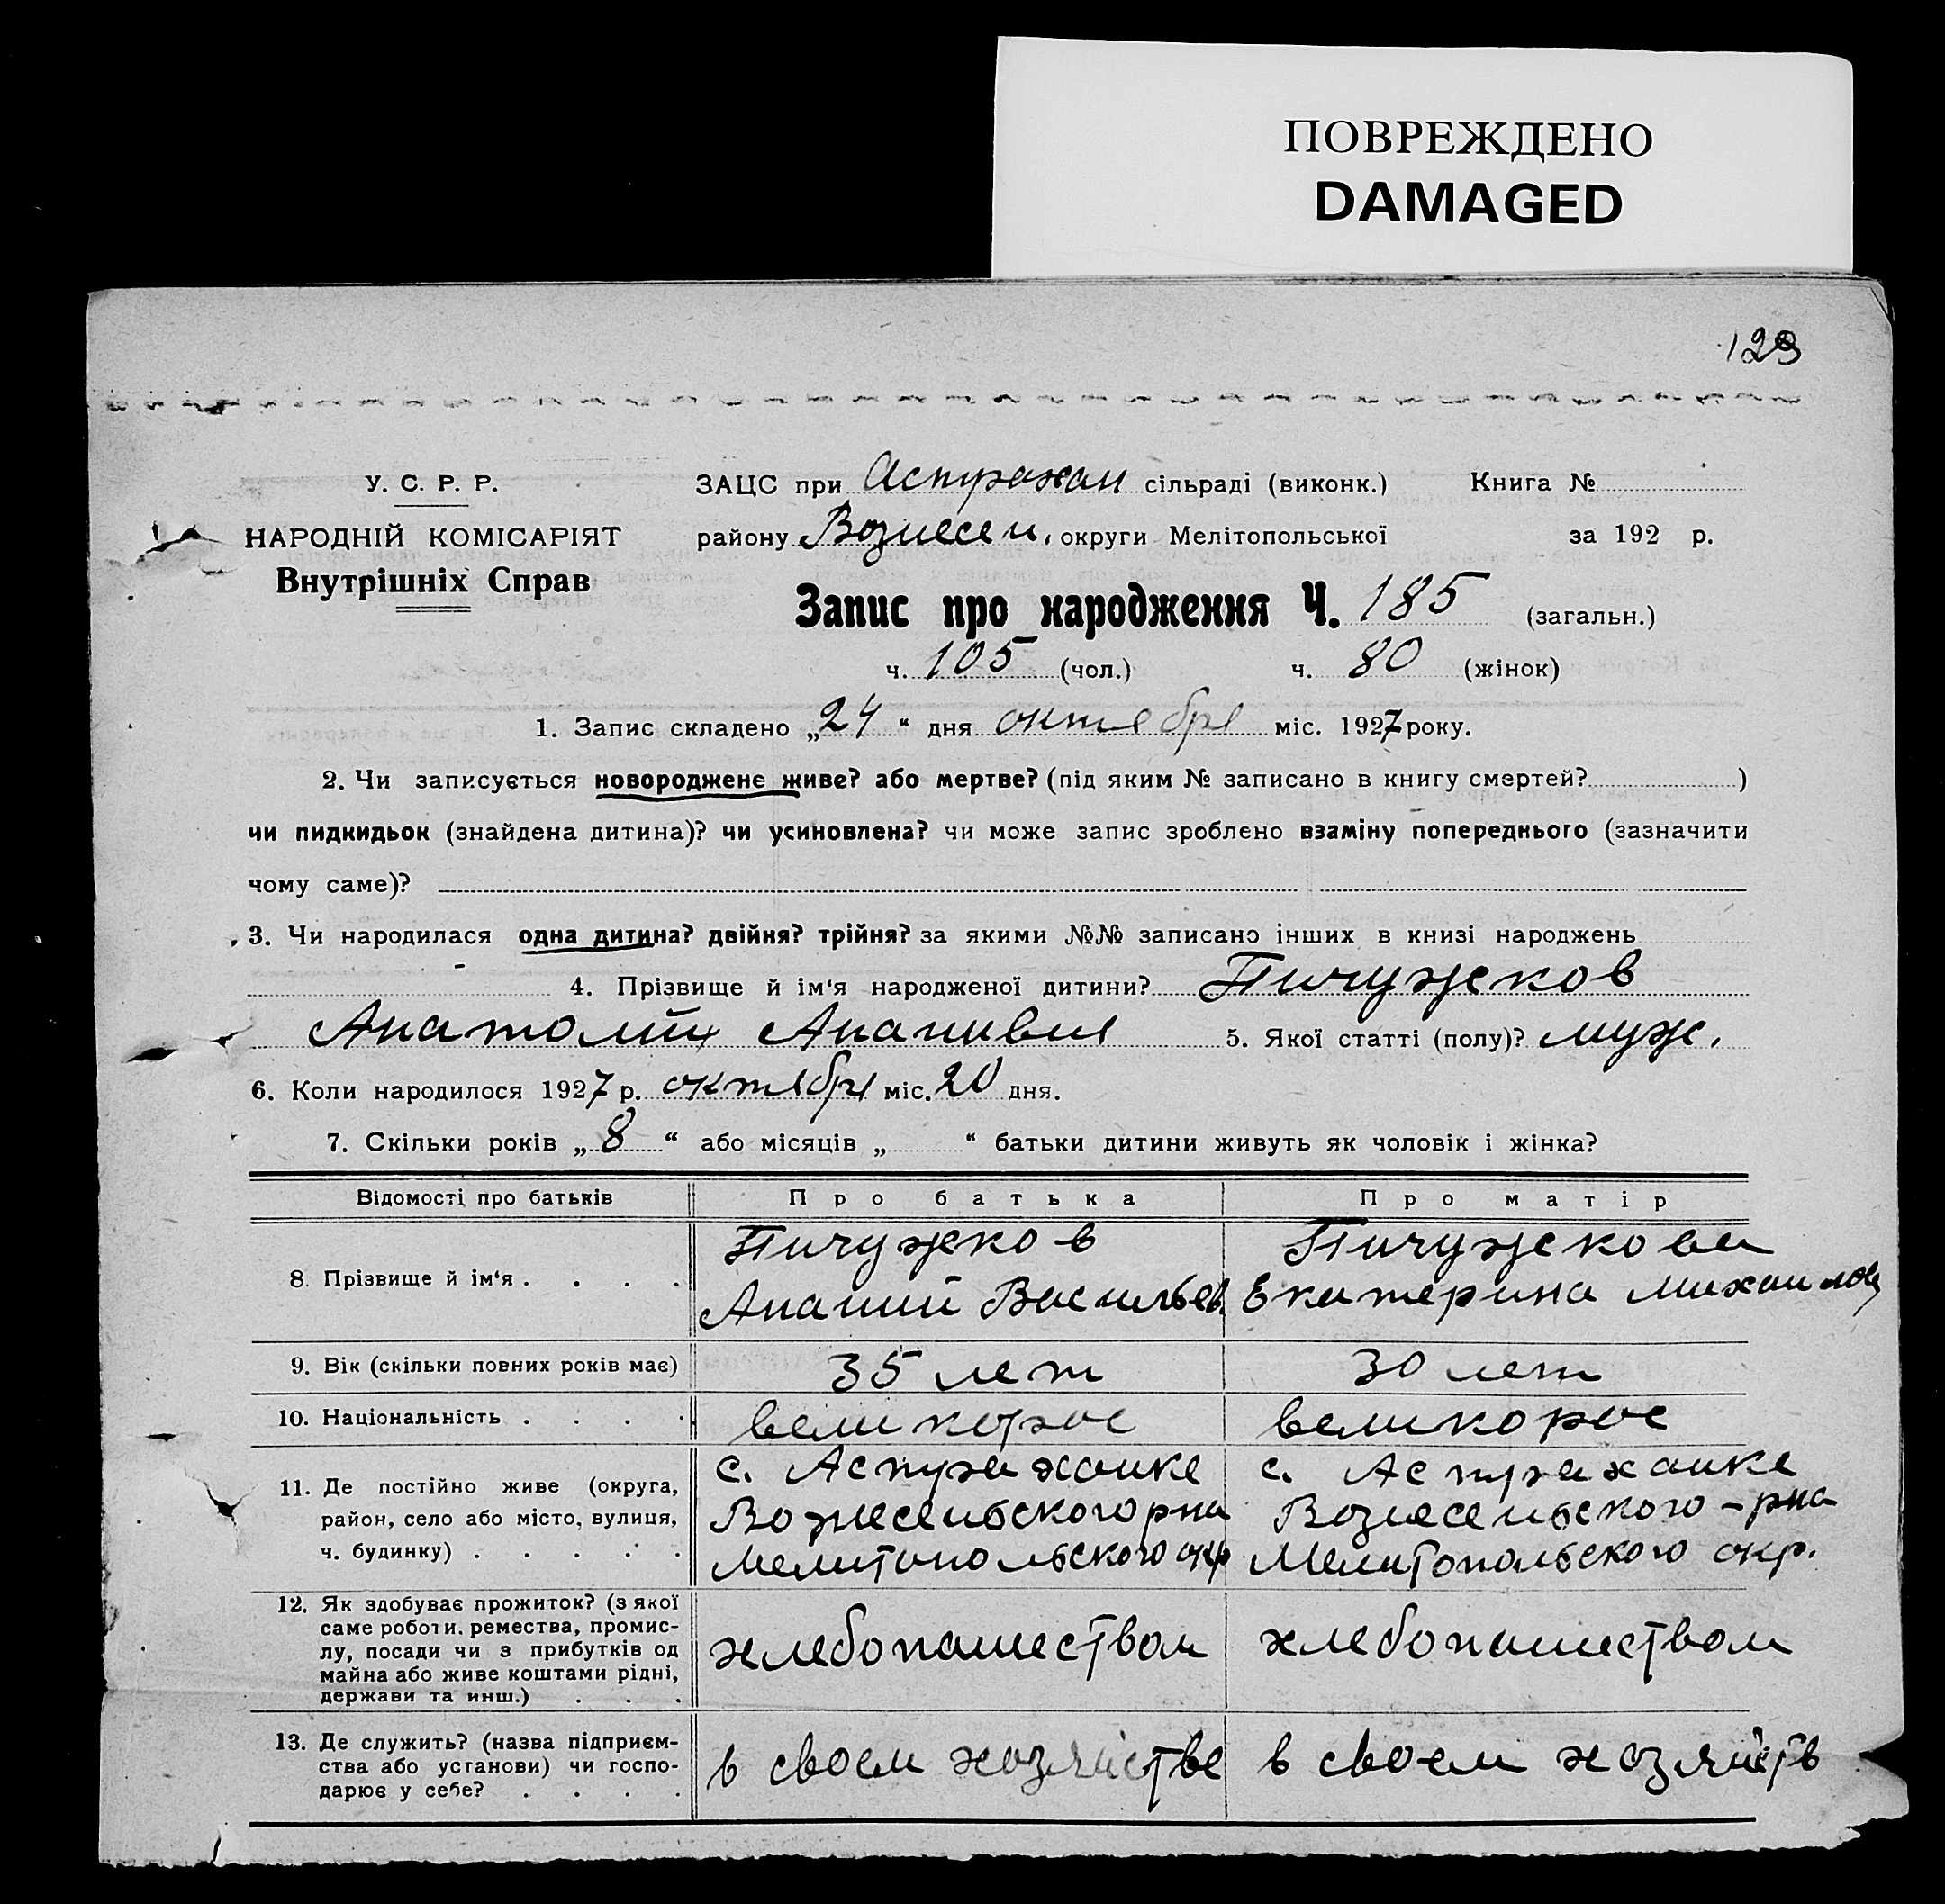 ПОВРЕЖДЕНО
DAMAGED
У. С. Р. Р.
НАРОДНІЙ КОМІСАРІЯТ
Внутрішніх Справ
ЗАЦС при Астрахан сільраді (виконк.) Книга №
району Вознесен. округи Мелітопольської за 192 р.
Запис про народження Ч. 185 (загальн.)
ч. 105 (чол.) ч. 80 (жінок)
1. Запис складено „24“ дня октября міс. 1927 року.
2. Чи записується новороджене живе? або мертве? (під яким № записано в книгу смертей? )
чи пидкидьок (знайдена дитина)? чи усиновлена? чи може запис зроблено взаміну попереднього (зазначити
чому саме)?
3. Чи народилася одна дитина? двійня? трійня? за якими №№ записано інших в книзі народжень
4. Прізвище й ім‘я народженої дитини? Пичужков
Анатолий 5. Якої статті (полу)? муж.
6. Коли народилося 1927 р. октября міс. 20 дня.
7. Скільки років „8“ або місяців „ “ батьки дитини живуть як чоловік і жінка?
Відомості про батьків Про батька Про матір
8. Прізвище й ім‘я . . . . Пичужков Ананий Васильев. Пичужкова Екатерина Михайлов
9. Вік (скільки повних років має) 35 лет 30 лет
10. Національність . . . . великорос великорос
11. Де постійно живе (округа, район, село або місто, вулиця, ч. будинку) . . . . . с. Астраханке Вознесеньского рна Мелитопольского окр с. Астраханке Вознесеньского-рна Мелитопольского окр.
12. Як здобуває прожиток? (з якої саме роботи, ремества, промислу, посади чи з прибутків од майна або живе коштами рідні, держави та инш.) . . . хлебопашеством хлебопашеством
13. Де служить? (назва підприємства або установи) чи господарює у себе? . . . . в своем хозяйстве в своем хозяйств